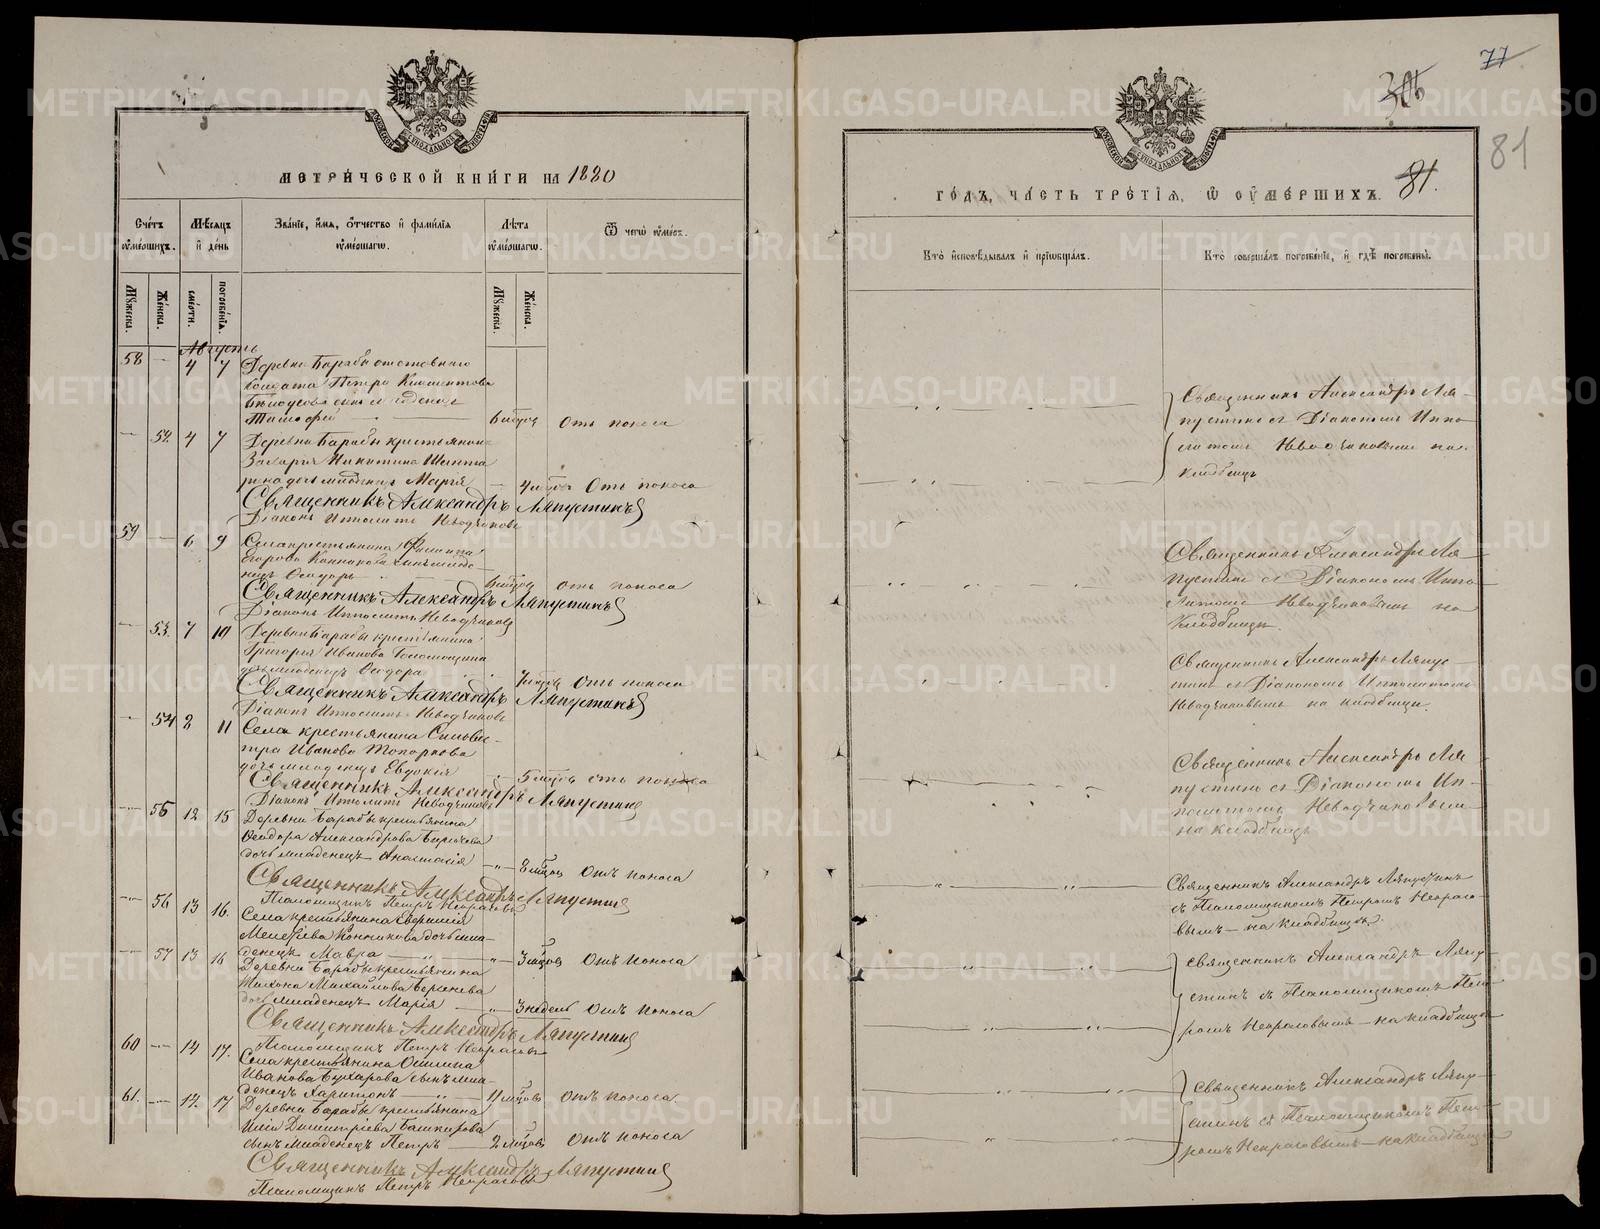 МЕТРИ́ЧЕСКОЙ КНИ́ГИ НА 1880
Сче́тъ ᲂу҆ме́ршихъ.
Мѣ́сяцъ и҆ де́нь
Зва́нїе, и҆́мѧ, ѻ҆́тчество и҆ фами́лїѧ ᲂу҆ме́ршагѡ.
Лѣ́та ᲂу҆ме́ршагѡ.
Ѿ чегѡ̀ ᲂу҆́меръ.
Мꙋ́жеска.
Же́нска.
сме́рти.
погребе́нїѧ.
Мꙋ́жеска.
Же́нска.
Августъ
58 — 4 7 Деревни Барабы отставнаго
солдата Петра Климентова
Бѣлоусова сынъ младенецъ
Тимофей 6 мѣсяц отъ поноса
— 52. 4 7 Деревни Барабы крестьянина
Захарія Никитина
дочь младенец Марія — 4 мѣсяц Отъ поноса
Священникъ Александръ Ляпустинъ
Діаконъ Ипполитъ Неводчиковъ
59 — 6 9 Села крестьянина Филиппа
Егорова Конникова сынъ младе-
нецъ Ѳеодоръ отъ поноса
Священникъ Александръ Ляпустинъ
Діаконъ Ипполитъ Неводчиковъ
— 53. 7 10 Деревни Барабы крестьянина
Григорія Иванова
дочь младенецъ Ѳеодора отъ поноса
Священникъ Александръ Ляпустинъ
Діаконъ Ипполитъ Неводчиковъ
— 54 2 11 Села крестьянина Сильвес-
тра Иванова Топоркова
дочь младенецъ Евдокія 5 мѣсяцов отъ поноса
Священникъ Александръ Ляпустинъ
Діаконъ Ипполитъ Неводчиковъ
55 12 15 Деревни Барабы крестьянина
Ѳеодора Александрова
дочь младенецъ Анастасія —„— 8 мѣсяцов Отъ поноса
Священникъ Александръ Ляпустинъ
Псаломщикъ Петръ Некрасовъ
— 56 13 16. Села крестьянина
Конникова дочь мла-
денецъ Мавра —„— 3 мѣсяцов Отъ поноса
— 57 13 16 Деревни Барабы крестьянина
Тихона Михайлова
дочь младенецъ Марія —„— 3 недель Отъ поноса
Священникъ Александръ Ляпустинъ
Псаломщикъ Петръ Некрасовъ
60 — 14 17. Села крестьянина Осипа
Иванова Бухарова сынъ мла-
денецъ Харитонъ 11 мѣсяцовъ Отъ поноса
61. — 14. 17 Деревни Барабы крестьянина
Ильи Димитріева Башкирова
сынъ младенецъ Петръ 2 мѣсяцовъ Отъ поноса
Священникъ Александръ Ляпустинъ
Псаломщикъ Петръ Некрасовъ
77
81
81.
ГО́ДЪ, ЧА́СТЬ ТРЕ́ТЇѦ, Ѡ҆ ᲂУ҆МЕ́РШИХЪ.
Кто̀ и҆сповѣ́дывалъ и҆ прїѡбща́лъ.
Кто̀ соверша́лъ погребе́нїе, и҆ гдѣ̀ погребены̀.
Священникъ Александръ Ля-
пустинъ съ Діакономъ Иппо-
литомъ Неводчиковымъ на
кладбищѣ
Священникъ Александръ Ля-
пустинъ съ Діакономъ Иппо-
литомъ Неводчиковымъ на
кладбищѣ.
Священникъ Александръ Ляпус-
тинъ съ Діакономъ Ипполитомъ
Неводчиковымъ на кладбищѣ.
Священникъ Александръ Ля-
пустинъ съ Діакономъ Ип-
политомъ Неводчиковымъ
на кладбищѣ
Священникъ Александръ Ляпустинъ
съ Псаломщикомъ Петромъ Некрасо-
вымъ — на кладбищѣ.
Священникъ Александръ Ляпу-
стинъ съ Псаломщикомъ Пет-
ромъ Некрасовымъ — на кладбищѣ
Священникъ Александръ Ляпу-
стинъ съ Псаломщикомъ Пет-
ромъ Некрасовымъ — на кладбищѣ
METRIKI.GASO-URAL.RU